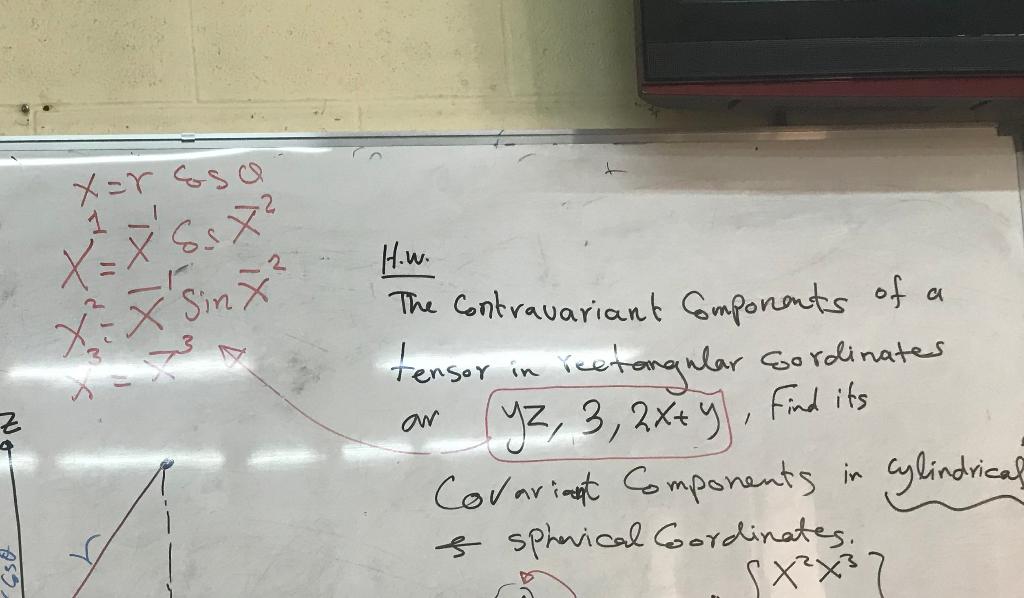 x = r Cos θ
X¹ = X̄¹ Cos X̄²
X² = X̄¹ Sin X̄²
X³ = X̄³
H.w.
The Contravariant Components of a
tensor in rectangular Coordinates
are yz, 3, 2x+y, Find its
Covariant Components in cylindrical
& spherical Coordinates.
X²X³
Z
r